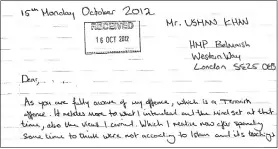 15th Monday October 2012
RECEIVED
16 OCT 2012
Mr. USMAN KHAN
HMP Belmarsh
Western Way
London SE28 0EB
Dear, . . . .
As you are fully aware of my offence, which is a Terrorism
offence. It relates more to what I intended and the mind set at that
time, also the views I carried. Which I realise now after spending
some time to think were not according to Islam and its teachings